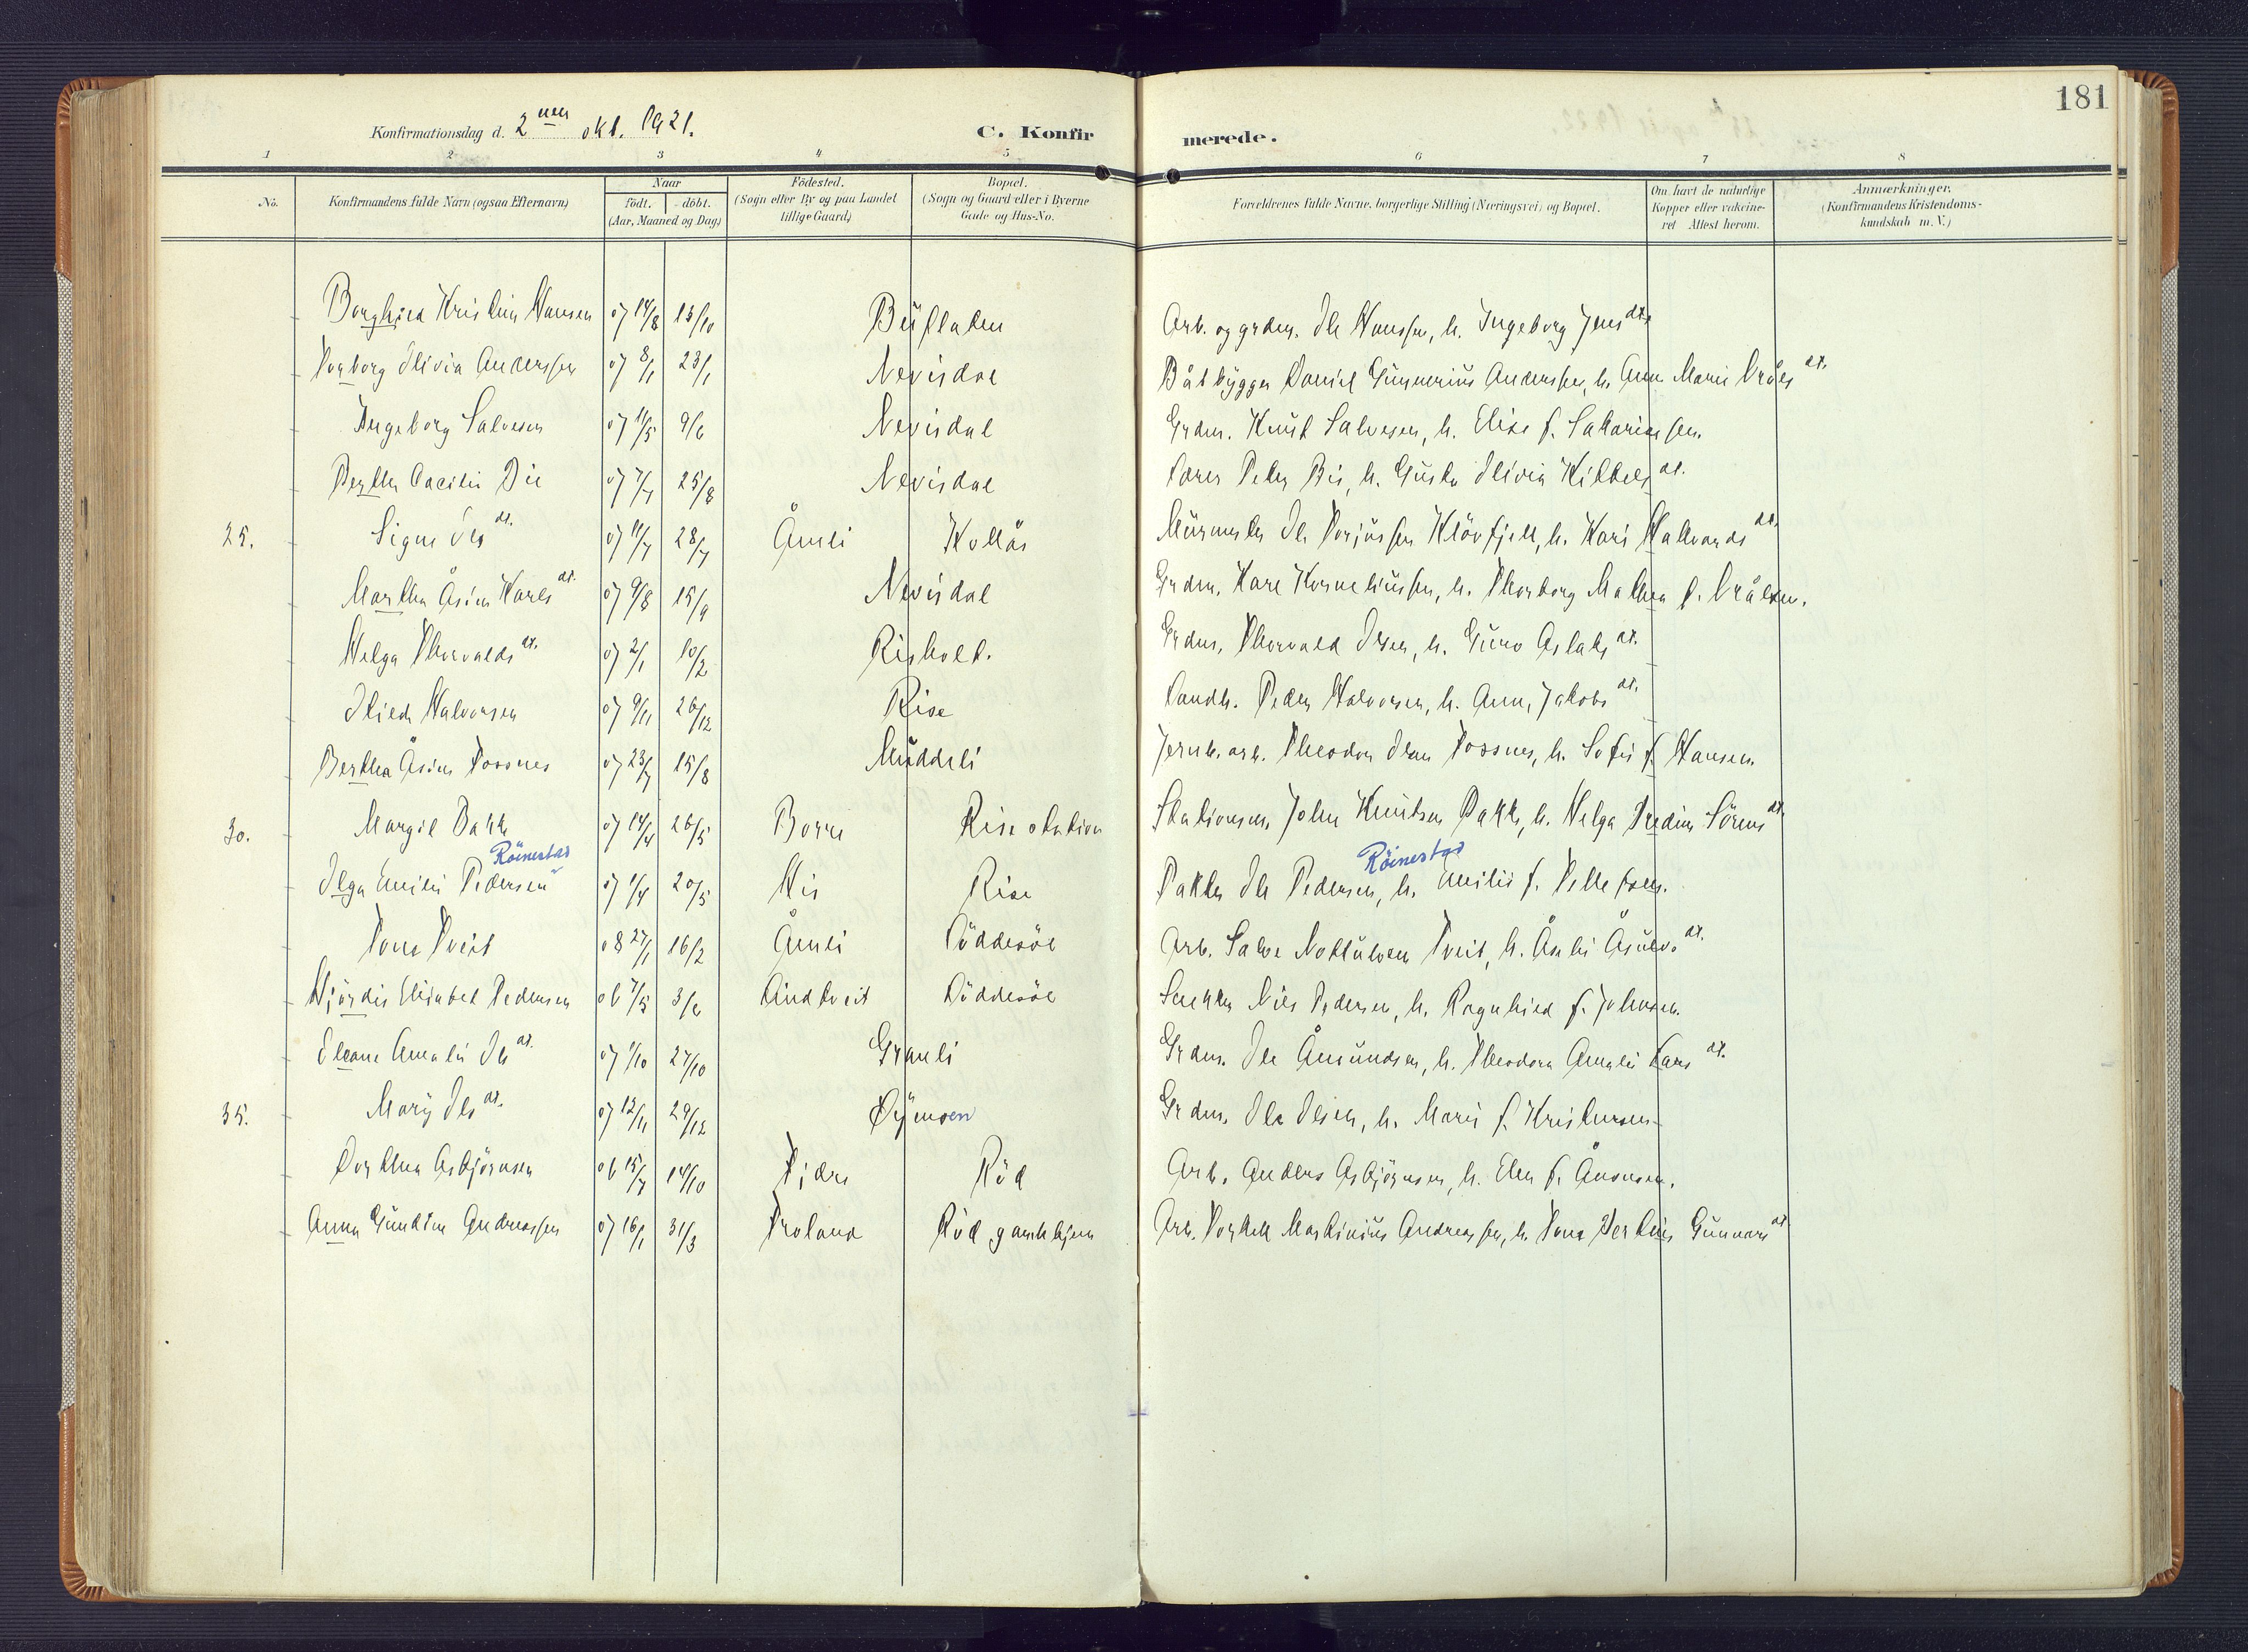 181
Konfirmationsdag d. 2nen okt. 1921.
C. Konfirmerede.
1 2 3 4 5 6 7 8
No.
Konfirmandens fulde Navn (ogsaa Efternavn)
Naar
født. døbt.
(Aar, Maaned og Dag)
Födested.
(Sogn eller By og paa Landet
tillige Gaard)
Bopæl.
(Sogn og Gaard eller i Byerne
Gade og Hus-No.
Forældrenes fulde Navne, borgerlige Stilling (Næringsvei) og Bopæl.
Om havt de naturlige
Kopper eller vakcine-
ret Attest herom.
Anmærkninger.
(Konfirmandens Kristendoms-
kundskab m. V.)
Borghild Kristine Hansen 07 14/8 13/10 Arb. og grdm. Ole Hanssen, h. Ingeborg Jensdt.
Torborg Olivia Anderssen 07 8/1 23/1 Nevisdal Båtbygger Daniel Gunnerius Anderssen, h. Anne Marie
Ingeborg Salvesen 07 11/5 9/6 Nevisdal Grdm. Knut Salvesen, h. Elise f. Sakariassen.
Bertha Cacilie Bie 07 7/7 25/8 Nevisdal Lærer Peter Bie, h. Gusta Olivia Kittelsdt.
25. Signe Olsdt. 07 11/7 28/7 Åmli Kollås Murmester Ole Torjussen Kløvfjell, h. Kari Hallvardsdt.
Martha Åsine Karlsdt. 07 9/8 15/9 Nevisdal Grdm. Karl Korneliussen, h. Thorborg Mathea f. Vrålsen.
Helga Thorvaldsdt. 07 2/1 10/2 Risholt. Grdm. Thorvald Olsen, h. Guro Aslaksdt.
Halvorsen 07 9/11 26/12 Rise Landh. Peder Halvorsen, h. Anne Jakobsdt.
Bertha Åsine Tossnes 07 23/7 15/8 Jernb. arb. Theodor Tossnes, h. Sofie f. Hansen
30. Margit Bakke 07 14/4 26/5 Borre Rise station Stationsm. John Knutsen Bakke, h. Helga Sörensdt.
Röinestad Röinestad
Olga Emilie Pedersen 07 1/4 20/5 His Rise Pakker Ole Pedersen, h. Emilie f. Tellefsen.
Tone Tveit 08 27/1 16/2 Åmli Löddesöl Arb. Salve Nottulven Tveit, h. Åslu Åsulvsdt.
Hjördis Elisabet Pedersen 06 7/5 3/6 Lindtveit Löddesöl Snekker Nils Pedersen, h. Ragnhild f. Johnsen.
Amalie Olsdt. 07 1/10 27/10 Granli Grdm. Ole Åmundsen, h. Theodora Amalie Larsdt.
35. Mary Olsdt. 07 12/11 29/12 Øymoen Grdm. Ole Olsen, h. Marie f. Kristensen
Dorthea Asbjörnsen 06 15/7 14/10 Röd Arb. Anders Asbjörnsen, h. Elen f. Åsonsen.
Anna Gundine Andreassen 07 16/1 31/3 Froland Röd gamlehjem Arb. Torkel Martinius Andreassen, h. Tone Gunnarsdt.